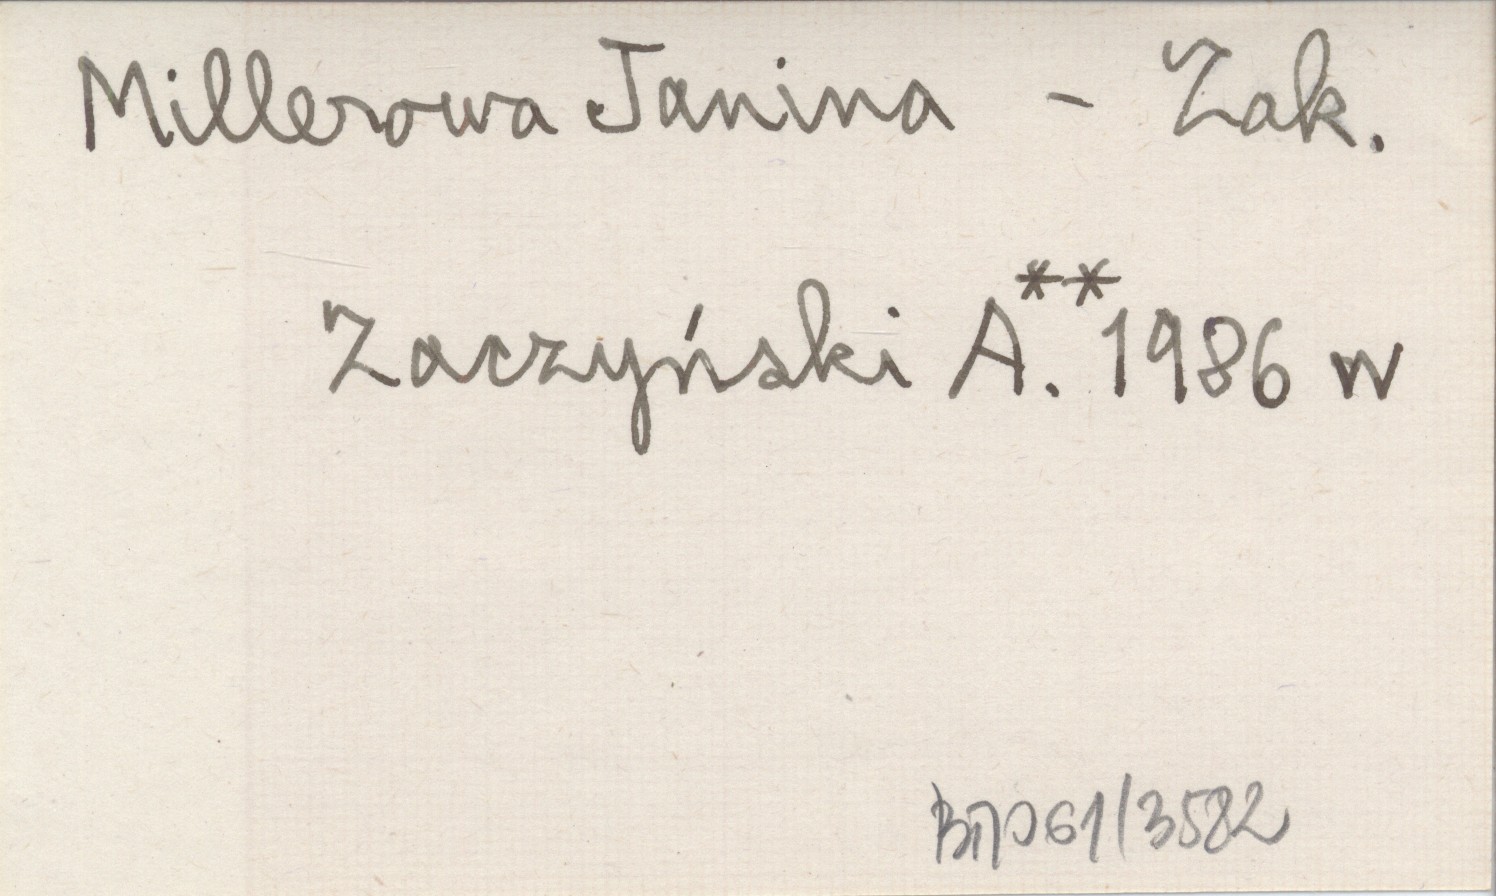 Millerowa Janina - Zak.
Zaczyński A.** 1986 w
61/3582